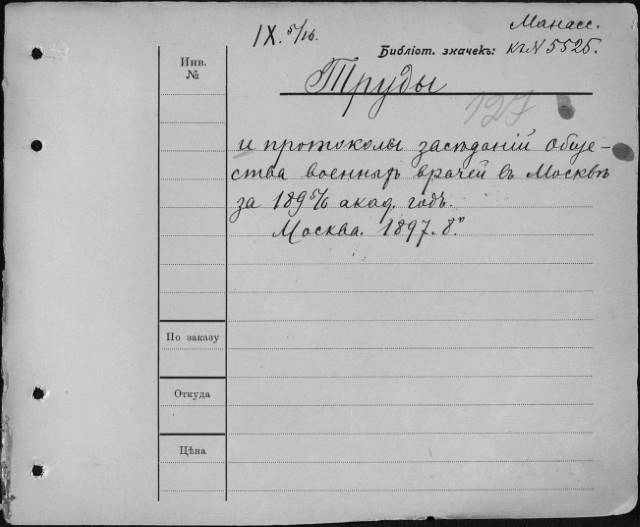 Манасс.
IX. 5/16.
Библіот. значекъ: кг № 5525.
Инв.
№
Труды
127
и протоколы засѣданій обще-
ства военныхъ врачей въ Москвѣ
за 1895/6 акад. годъ.
Москва. 1897. 8.°
По заказу
Откуда
Цѣна